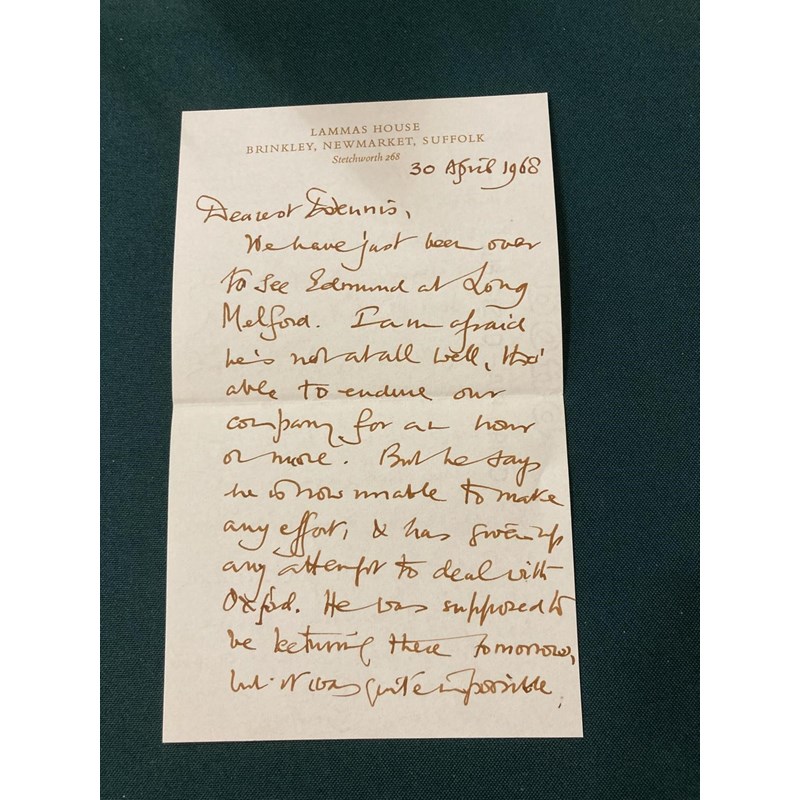 LAMMAS HOUSE
BRINKLEY, NEWMARKET, SUFFOLK
Stetchworth 268
30 April 1968
Dearest Dennis,
We have just been over
to see Edmund at Long
Melford. I am afraid
he's not at all well, tho'
able to endure our
company for an hour
or more. But he says
he is now unable to make
any effort, & has given up
any attempt to deal with
Oxford. He was supposed to
be lecturing there tomorrow,
but it was quite impossible,